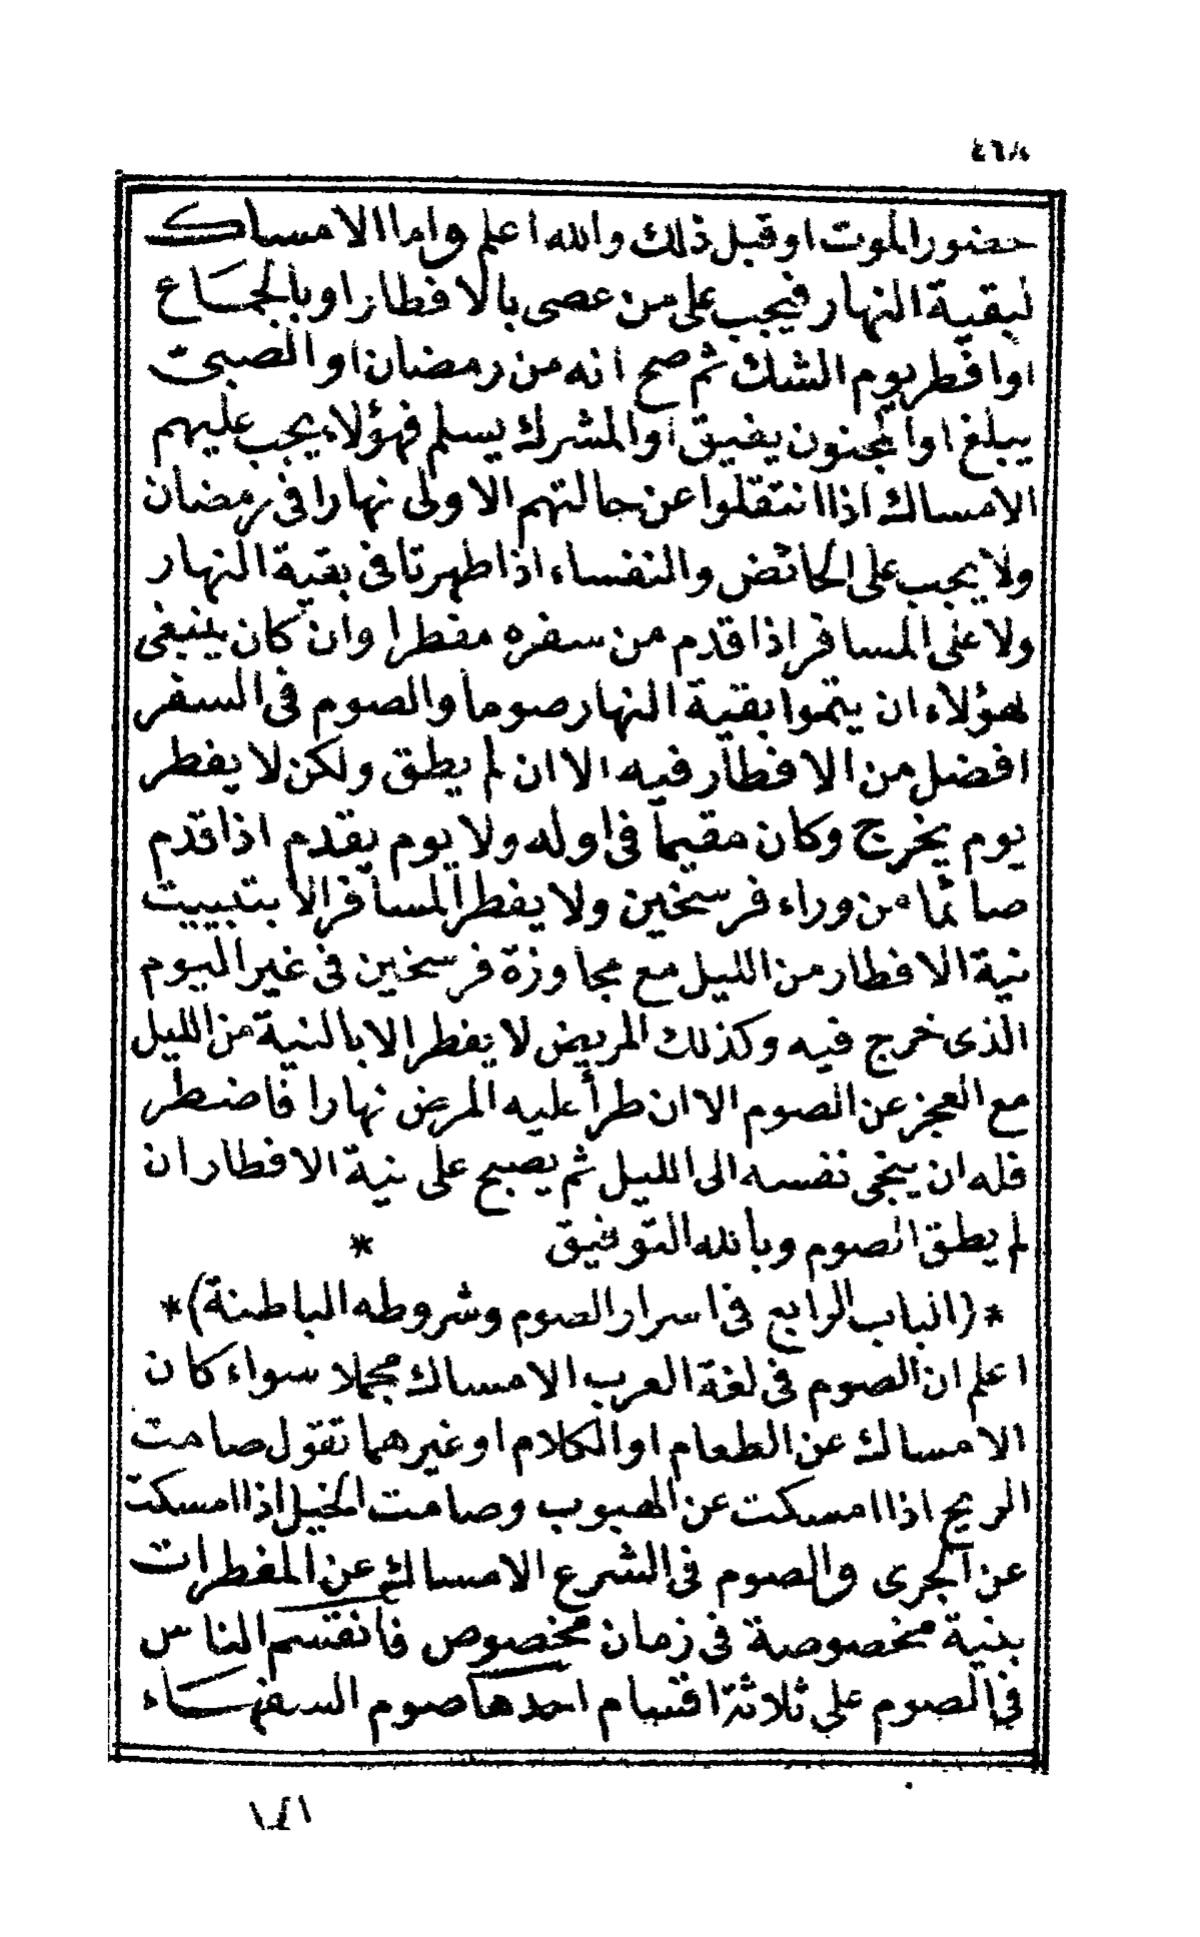 ٤٦٨
حضور الموت او قبل ذلك والله اعلم واما الامساك
لبقية النهار فيجب على من عصى بالافطار او بالجماع
او افطر يوم الشك ثم صح انه من رمضان او الصبي
يبلغ او المجنون يفيق او المشرك يسلم فهؤلاء يجب عليهم
الامساك اذا انتقلوا عن حالتهم الاولى نهارا في رمضان
ولا يجب على الحائض والنفساء اذا طهرتا في بقية النهار
ولا على المسافر اذا قدم من سفره مفطرا وان كان ينبغي
لهؤلاء ان يتموا بقية النهار صوما والصوم في السفر
افضل من الافطار فيه الا ان لم يطق ولكن لا يفطر
يوم يخرج وكان مقيما في اوله ولا يوم يقدم اذا قدم
صائما من وراء فرسخين ولا يفطر المسافر الا بتبييت
نية الافطار من الليل مع مجاوزة فرسخين في غير اليوم
الذى خرج فيه وكذلك المريض لا يفطر الا بالنية من الليل
مع العجز عن الصوم الا ان طرأ عليه المرض نهارا فاضطر
فله ان ينجي نفسه الى الليل ثم يصبح على نية الافطار ان
لم يطق الصوم وبالله التوفيق *
*(الباب الرابع في اسرار الصوم وشروطه الباطنة)*
اعلم ان الصوم في لغة العرب الامساك مجملا سواء كان
الامساك عن الطعام او الكلام او غيرهما تقول صامت
الريح اذا امسكت عن الهبوب وصامت الخيل اذا امسكت
عن الجرى والصوم في الشرع الامساك عن المفطرات
بنية مخصوصة في زمان مخصوص فانقسم الناس
في الصوم على ثلاثة اقسام احدها صوم السفهاء